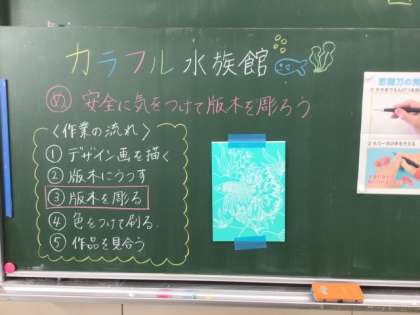 カラフル水族館
め 安全に気をつけて版木を彫ろう
〈作業の流れ〉
① デザイン画を描く
② 版木にうつす
③ 版木を彫る
④ 色をつけて刷る
⑤ 作品を見合う